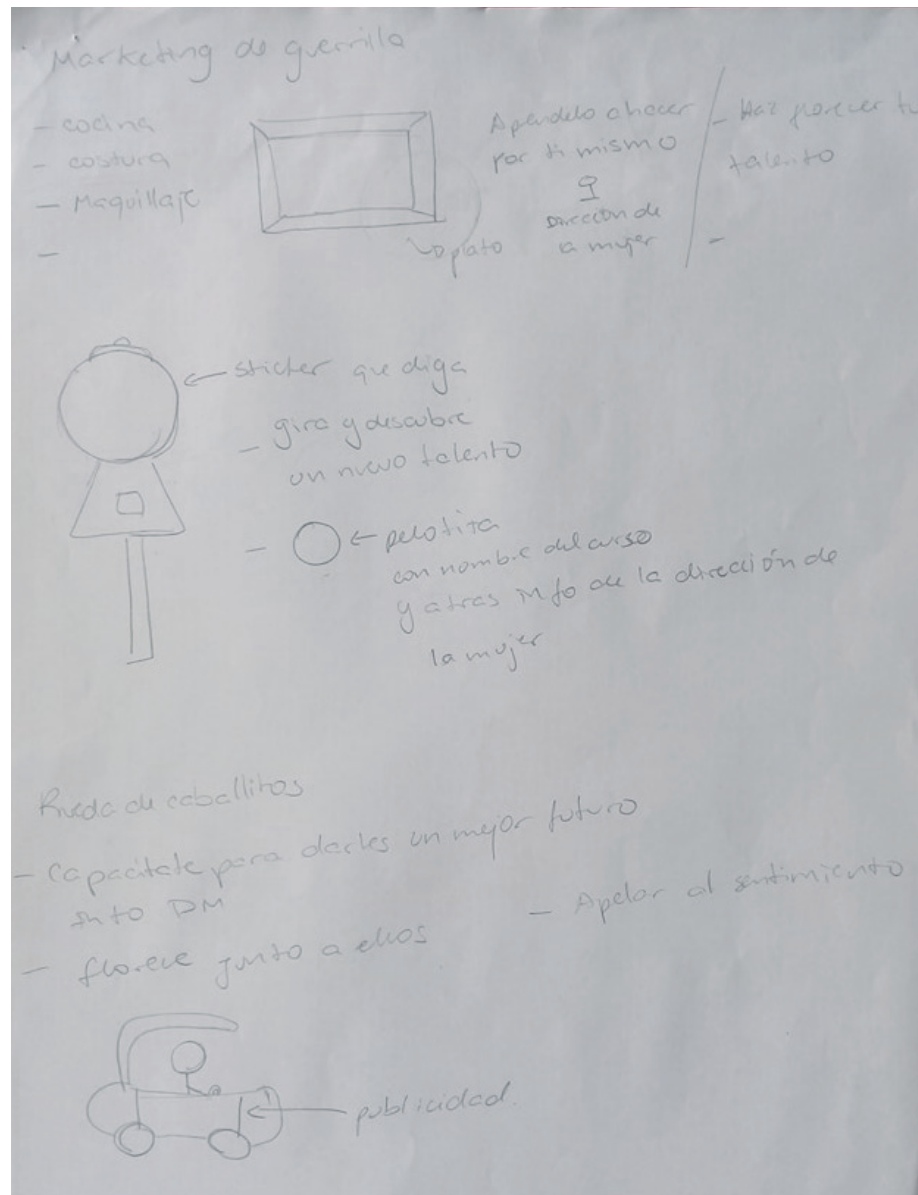 Marketing de guerrilla
- cocina
- costura
- Maquillaje
-
plato
Apendelo a hacer
por ti mismo
Dirección de
la mujer
- Haz florecer tu
talento
-
sticker que diga
- gira y descubre
un nuevo talento
- pelotita
con nombre del curso
y atras info de la dirección de
la mujer
Rueda de caballitos
- Capacitate para darles un mejor futuro
Info DM
- florece junto a ellos
- Apelar al sentimiento
publicidad.